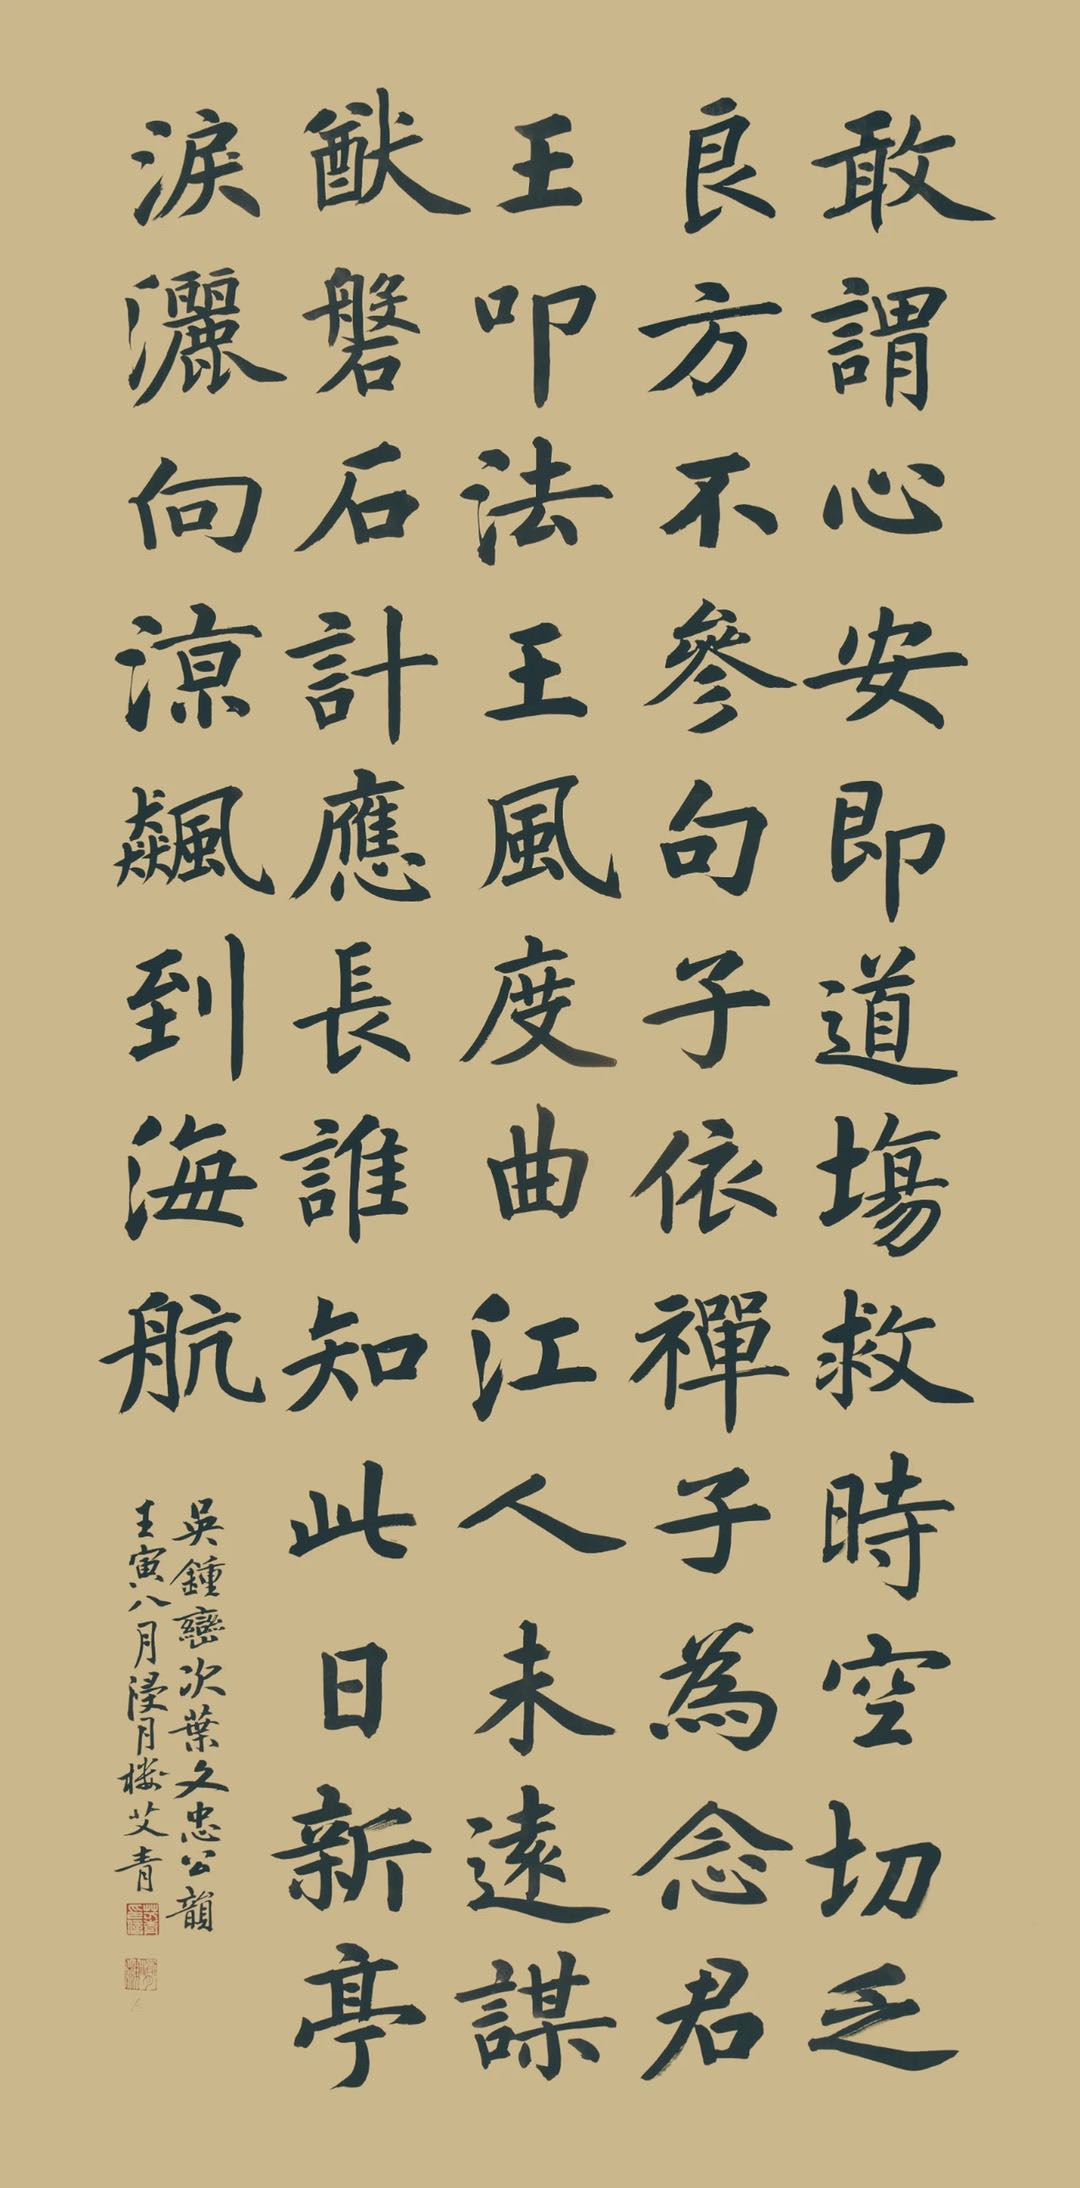 敢謂心安即道場救時空切乏
良方不參句子依禪子為念君
王叩法王王風度曲江人未遠謀
猷磐石計應長誰知此日新亭
淚灑向涼飆到海航
吳鍾巒次葉文忠公韻
壬寅八月浸月樓艾青